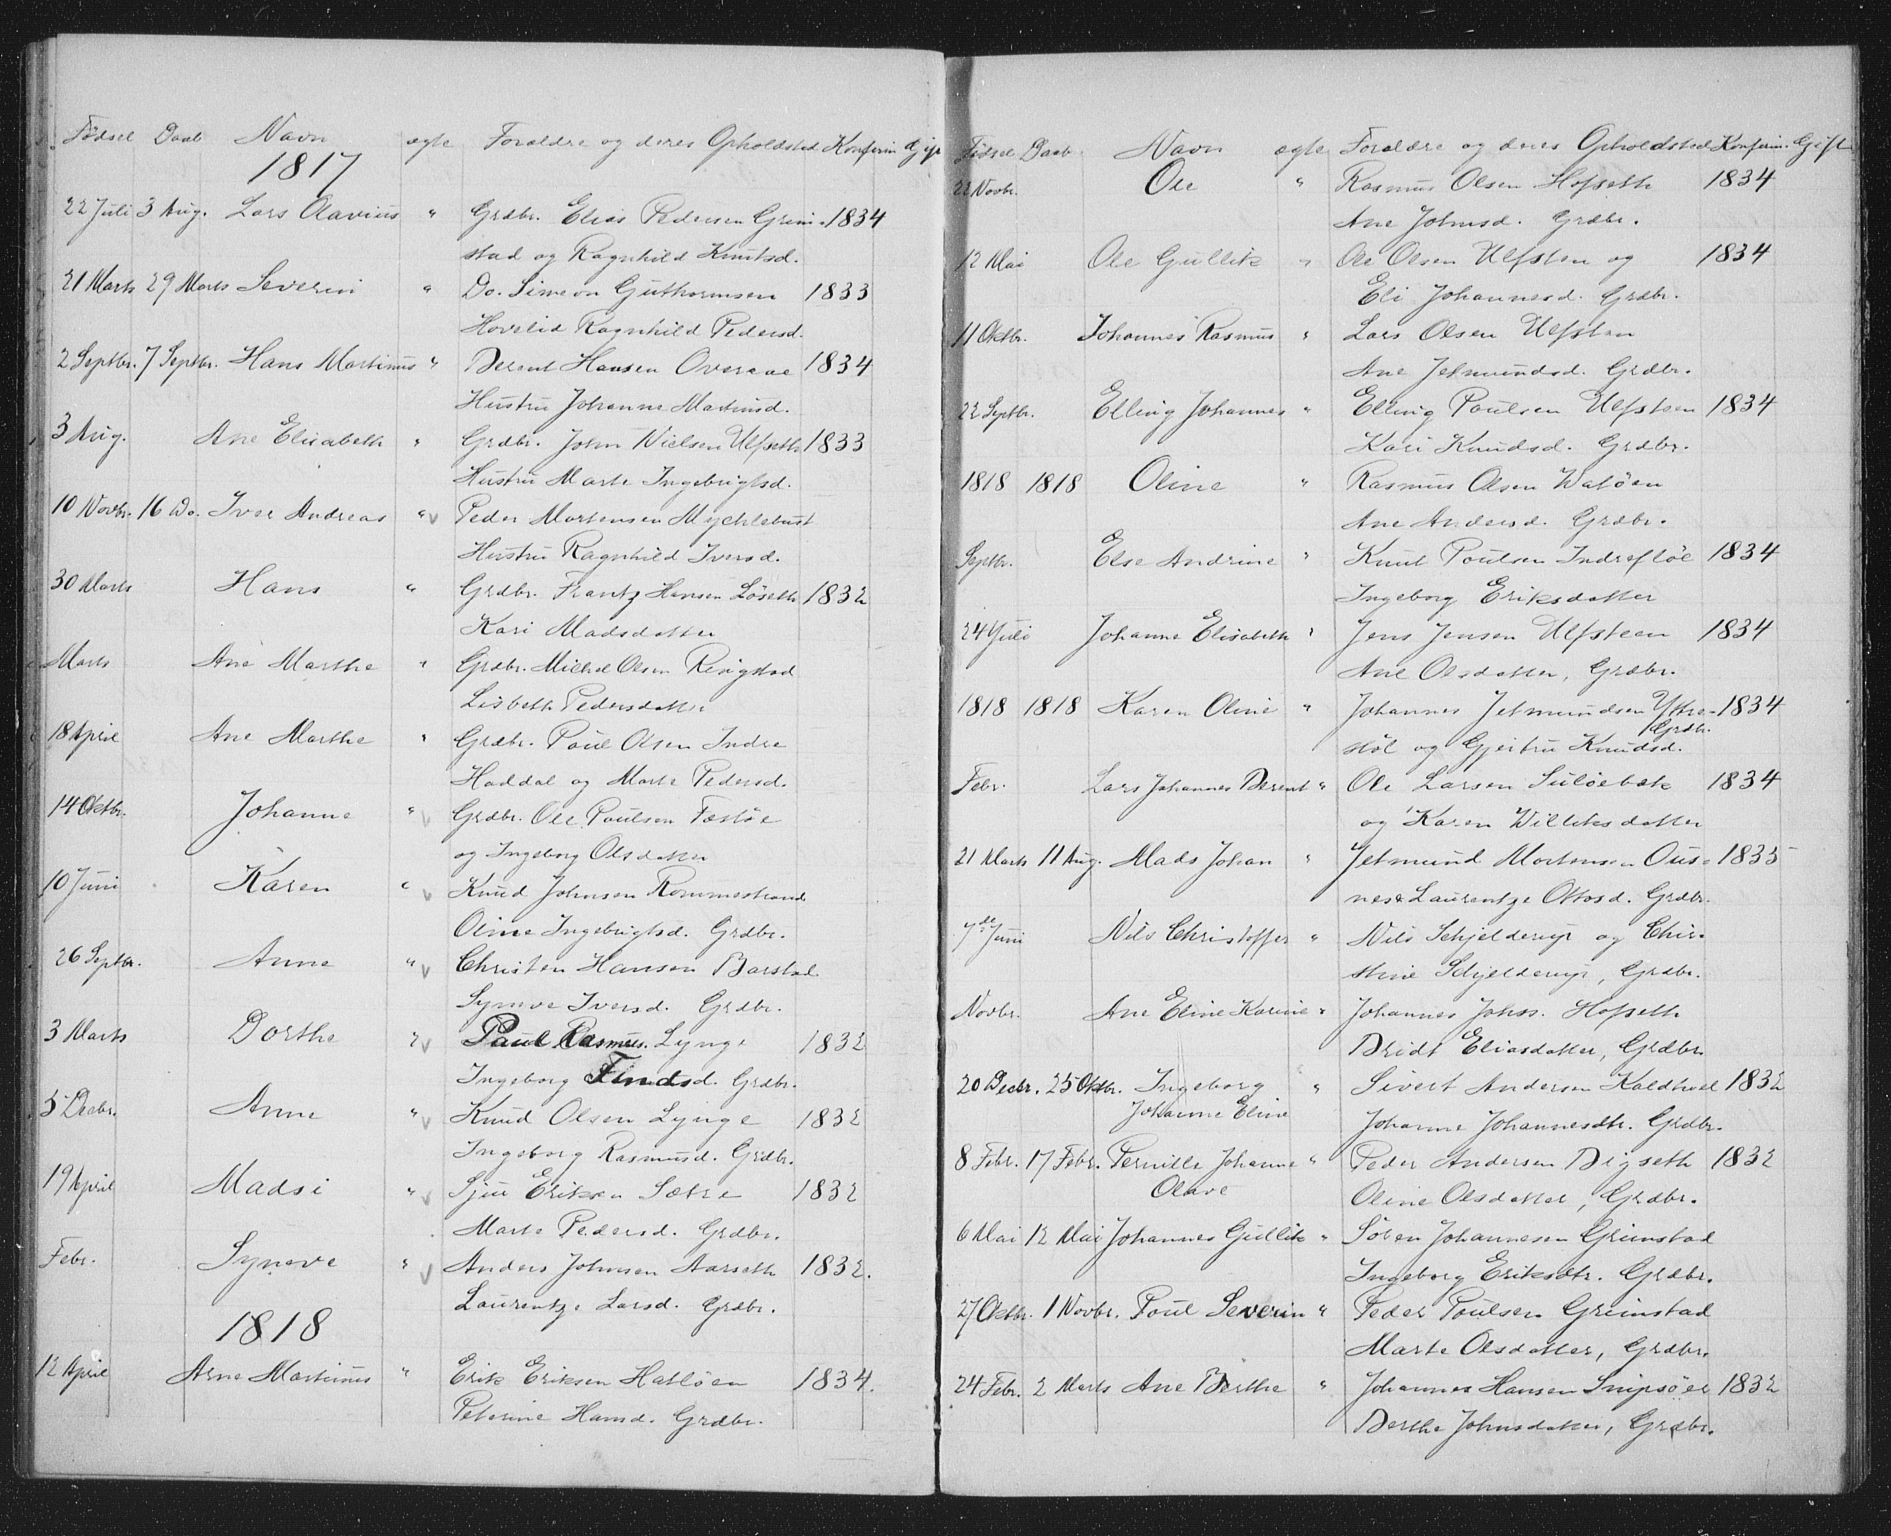 Födsel Daab Navn ægte Foraldre og deres Opholdsted Konfirm Gift
1817
22 Juli 3 Aug. Lars Olavius " Grdbr. Elias Pedersen Grim- 1834
stad og Ragnhild Knutsd.
21 Marts 29 Marts Severin " Do. Simeon Guthormsen 1833
Hovlid Ragnhild Pedersd.
2 Septbr. 7 Septbr. Hans Martinus " Berent Hansen Overaae 1834
Hustru Johanne Martinsd.
3 Aug. Ane Elisabeth " Grdbr. John Nielsen Ulfseth 1833
Hustru Marte Ingebrigtsd.
10 Novbr. 16 Do. Iver Andreas " v Peder Mortensen Myklebust
Hustru Ragnhild Iversd.
30 Marts Hans " Grdbr. Frantz Hansen Löseth 1832
Kari Madsdatter
Marts Ane Marthe " Grdbr. Michel Olsen Ringstad
Lisbeth Pedersdatter
18 April Ane Marthe " Grdbr. Poul Olsen Indre
Haddal og Marte Pedersd.
14 Oktbr. Johanne " v Grdbr. Ole Poulsen Festöe
og Ingeborg Olsdatter
10 Juni Karen " v Knud Johnsen Rommestrand
Oline Ingebrigtsd. Grdbr.
26 Septbr. Anne " v Christen Hansen Barstad
Synnve Iversd. Grdbr.
3 Marts Dorthe " v Paul Rasmus. Lynge 1832
Ingeborg Findsd. Grdbr.
5 Decbr. Anne " v Knud Olsen Lynge 1832
Ingeborg Rasmusd. Grdbr.
19 April Madsi " v Sjur Eriksen Sætre 1832
Marte Pedersd. Grdbr.
Febr. Syneve " v Anders Johnsen Aarseth 1832.
Laurentze Larsd. Grdbr.
1818
12 April Arne Martinus " Erik Eriksen Hatlöen 1834.
Peterine Hansd. Grdbr.
Födsel Daab Navn ægte Forældre og deres Opholdsted Konfirm. Gift
22 Novbr. Ole " Rasmus Olsen Hofseth 1834
Ane Johnsd. Grdbr.
12 Mai Ole Gullik " Ole Olsen Ulfsten og 1834
Eli Johannesd. Grdbr.
11 Oktbr. Johannes Rasmus " Lars Olsen Ulfsten
Ane Jetmundsd. Grdbr.
22 Septbr. Elling Johannes " Elling Poulsen Ulfsteen 1834
Kari Knudsd. Grdbr.
1818 1818 Oline " Rasmus Olsen Watöen
Ane Andersd. Grdbr.
Septbr. Else Andrine " Knut Poulsen Indreflöe 1834
Ingeborg Eriksdatter
24 Juli Johanne Elisabeth " Jens Jensen Ulfsteen 1834
Ane Olsdatter, Grdbr.
1818 1818 Karen Oline " Johannes Jetmundsen Yttre- 1834
flöe og Gjertru Knudsd. Grdbr.
Febr. Lars Johannes Berent " Ole Larsen Sulöebak 1834
og Karen Williksdatter
21 Marts 11 Aug. Mads Johan " Jetmund Mortensen Ous- 1835
nes & Laurentze Ottosd. Grdbr.
7de Juni Nils Christoffer " Nils Schjelderup og Chir-
stine Schjelderup, Grdbr.
Novbr. Ane Eline Karine " Johannes Johss. Hofseth
Bridt Eliasdatter, Grdbr.
20 Decbr. 25 Oktbr. Ingeborg " Sivert Andersen Kaldhoel 1832
Johanne Eline Johanne Johannesdtr. Grdbr.
8 Febr. 17 Febr. Pernille Johanne " Peder Andersen Digseth 1832
Olave Oline Olsdatter, Grdbr.
6 Mai 12 Mai Johannes Gullik " Sören Johannesen Grimstad
Ingeborg Eriksdtr. Grdbr.
27 Oktbr. 1 Novbr. Poul Severin " Peder Poulsen Grimstad
Marte Olsdatter, Grdbr.
24 Febr. 2 Marts Ane Berthe " Johannes Hansen Snipsöer 1832
Berthe Johnsdatter, Grdbr.